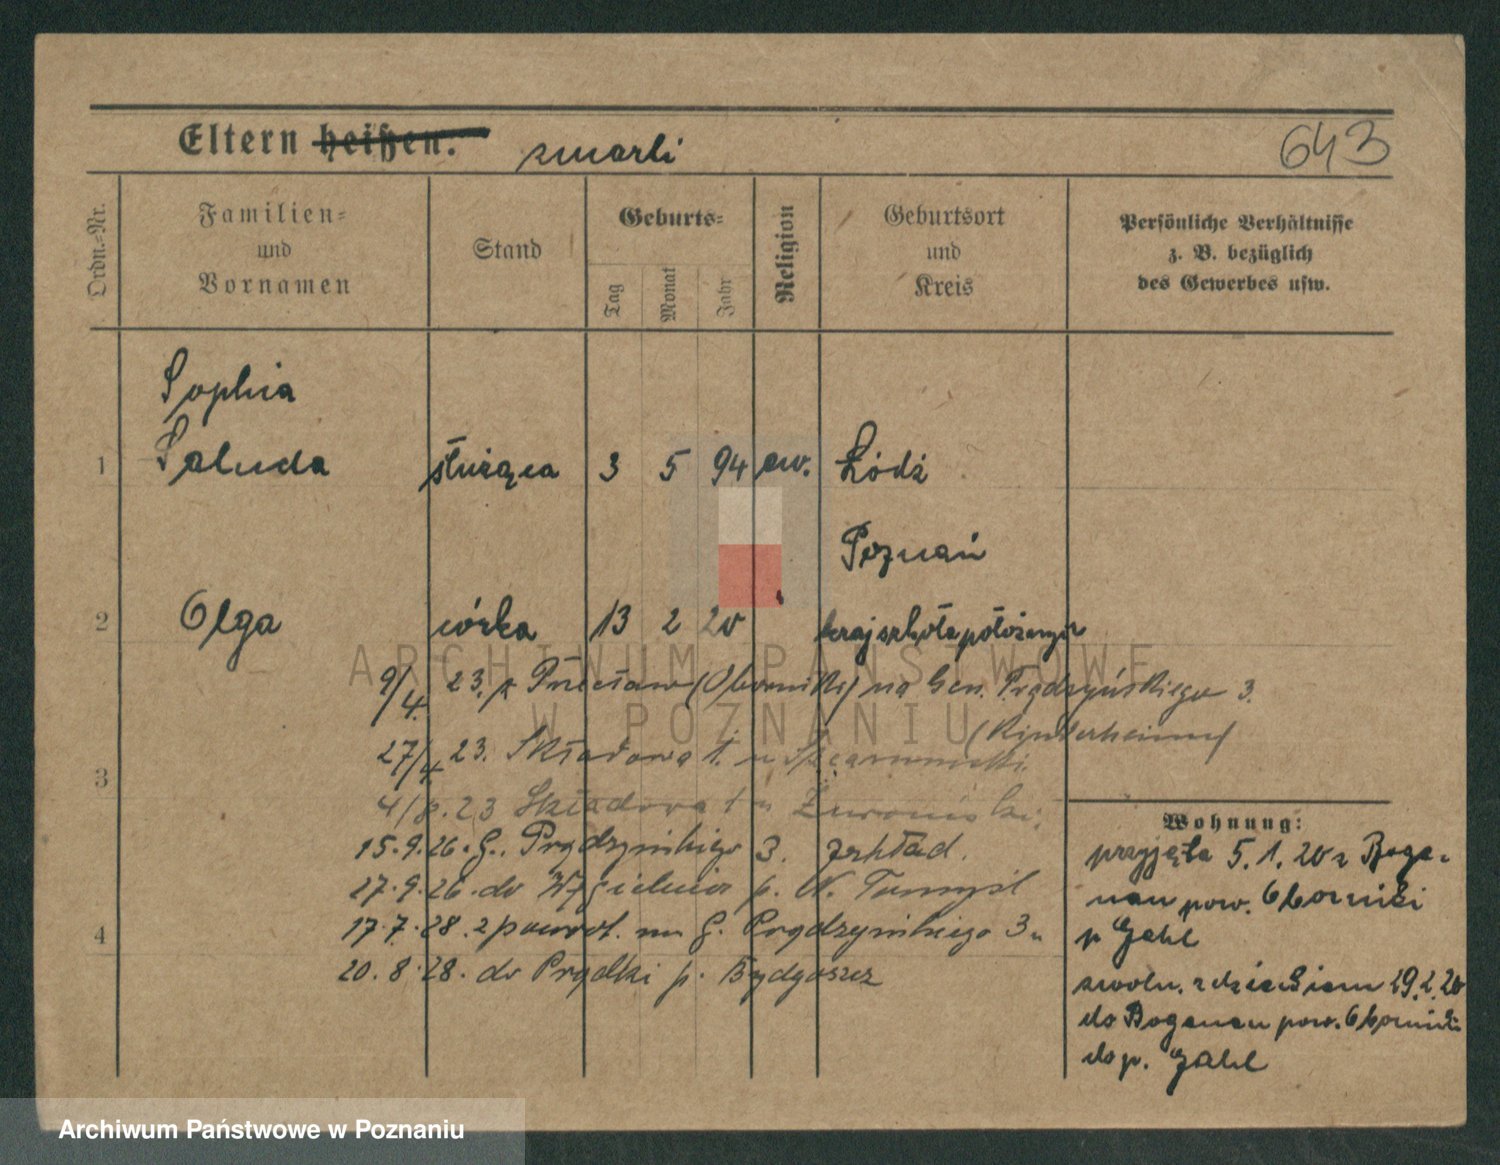 Eltern heißen: zmarli
643
Ordn.-Nr.
Familien-
und
Vornamen
Stand
Geburts-
Tag
Monat
Jahr
Religion
Geburtsort
und
Kreis
Persönliche Verhältnisse
z. B. bezüglich
des Gewerbes usw.
Sophia
1 Saluda służąca 3 5 94 ew. Łódź
Poznań
2 Olga córka 13 2 20 kraj szkoła położnych
9/4. 23. (Oborniki) na Gen. Prądzyńskiego 3.
(Kinderheim)
27/4. 23. Składowa
3
4/8. 23 Składowa
15. 9. 26. G. Prądzyńskiego 3. zakład.
27. 9. 26. do p. N. Tomyśl
4
17. 7. 28. z powrot. na G. Prądzyńskiego 3
20. 8. 28. do Prądki p. Bydgoszcz
Wohnung:
przyjęta 5. 1. 20 z Boga-
nau pow. Oborniki
p Gahl
zwoln. z dzieckiem 29. 2. 20
do Boganau pow. Oborniki
do p. Gahl
ARCHIWUM PAŃSTWOWE
W POZNANIU
Archiwum Państwowe w Poznaniu